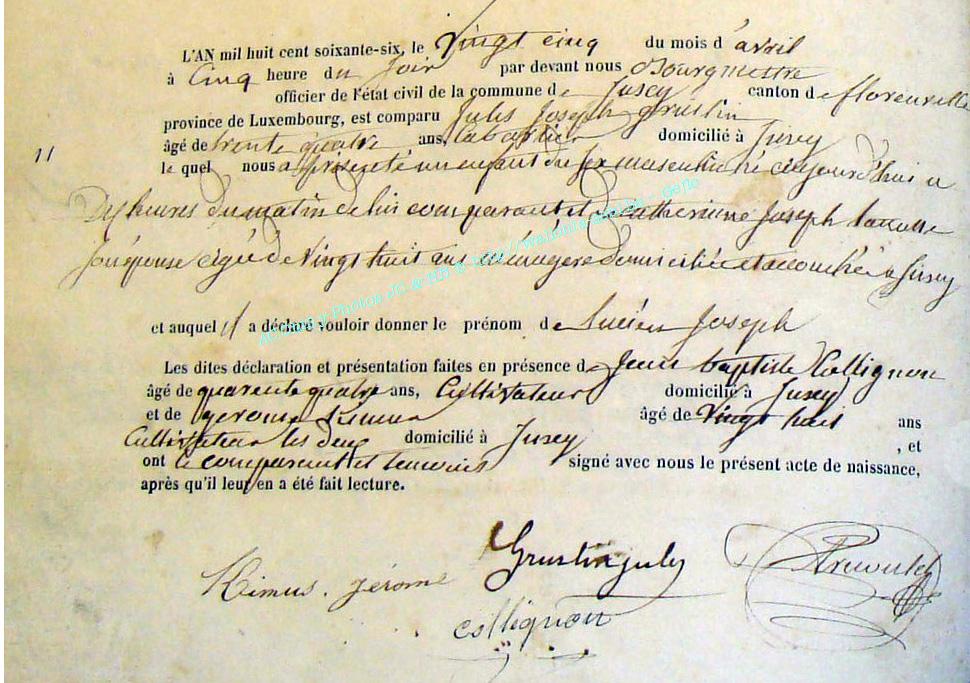 L'AN mil huit cent soixante-six, le Vingt cinq du mois d'avril
à Cinq heure du Soir par devant nous Bourgmestre
officier de l'état civil de la commune de Jusey canton de florenville
province de Luxembourg, est comparu Jules Joseph grustin
âgé de trente quatre ans, domicilié à Jusey
11
le quel nous a présenté un enfant du sex masculin né cejourd'hui a
Dix heures du matin de lui comparant et de Catherinne Joseph
Son épouse agé de Vingt huit ans ménagère domiciliée et accouchée a Jusey
et auquel il a déclaré vouloir donner le prénom de Lucien Joseph
Les dites déclaration et présentation faites en présence de Jean baptiste Collignon
âgé de quarente quatre ans, Cultivateur domicilié à Jusey
et de gerome âgé de Vingt huit ans
Cultivateur les deux domicilié à Jusey , et
ont le comparant et temoins signé avec nous le présent acte de naissance,
après qu'il leur en a été fait lecture.
Grustin jules
jérome
collignon